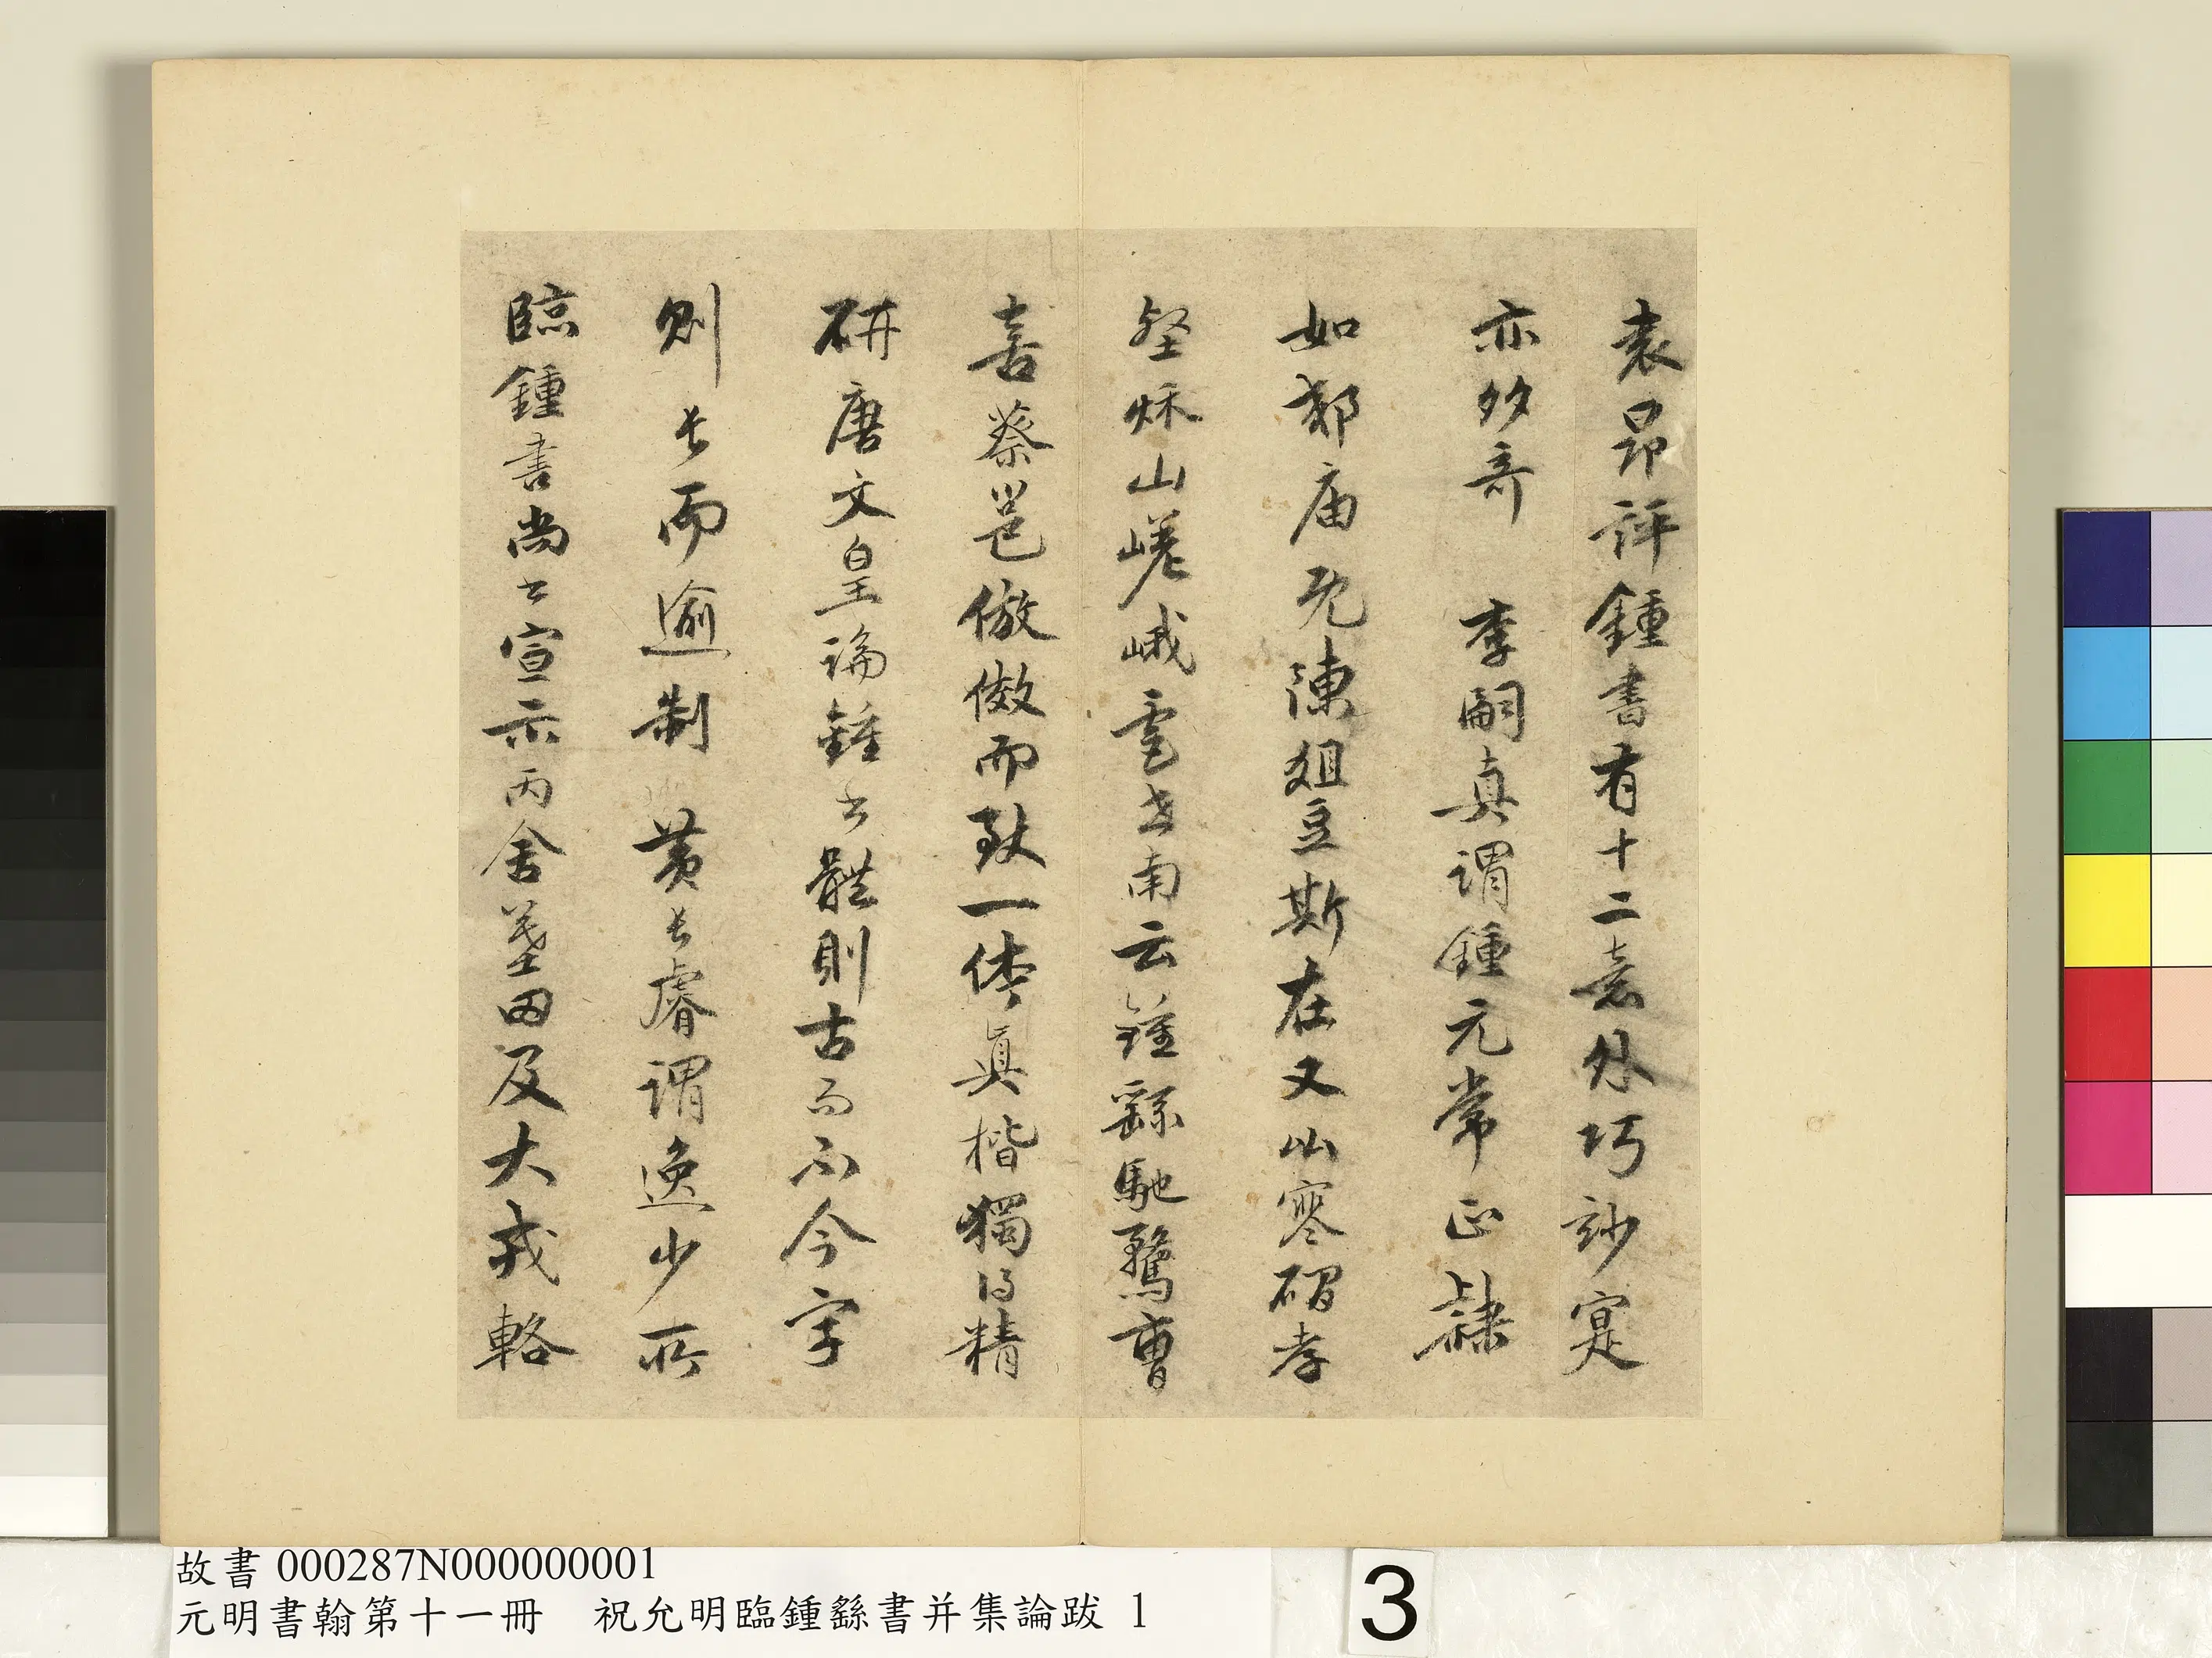 袁昂評鍾書有十二意外巧妙寔
亦多奇　李嗣真謂鍾元常正隸
如郊庙既陳俎豆斯在又山寒磵孝
壑秌山嵯峨雲老南云鍾繇馳騖曹
喜蔡邕倣傚而致一体真楷獨得精
研唐文皇論鍾書體則古而不今字
則長而逾制　黃長睿謂逸少所
臨鍾書尚書宣示丙舍墓田及大戎輅
故書 000287N000000001
元明書翰第十一冊　祝允明臨鍾繇書并集論跋 1
3